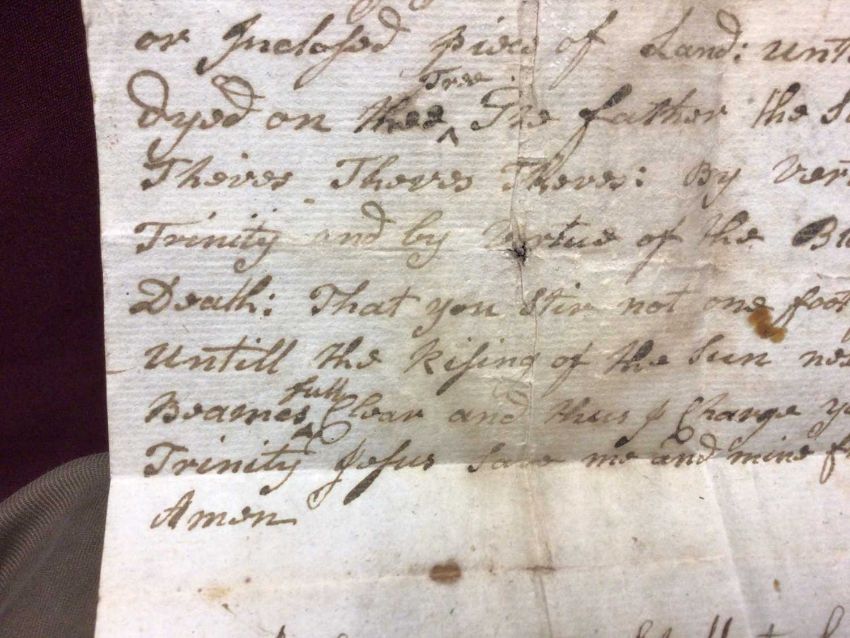 or Inclosed piece of Land: unti
dyed on thee Tree The father the S
Theives Theves Theves: By ver
Trinity and by Vertue of the B
Death: That you Stir not one foot
Untill the Rising of the Sun ne
Beames full Clear and thus I Charge y
Trinity Jesus Save me and mine f
Amen